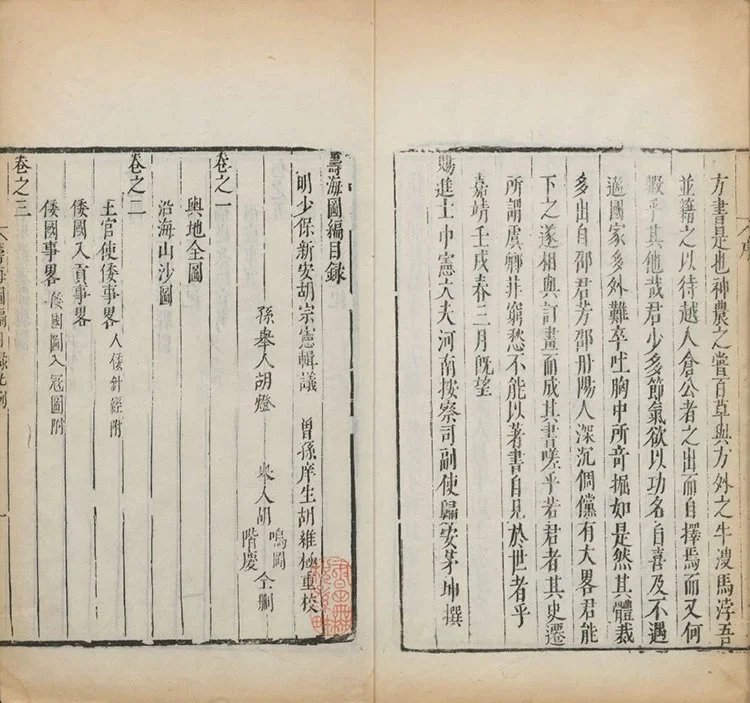 方書是也神農之嘗百草與方外之牛溲馬浡吾
並籍之以待越人倉公者之出而自擇焉而又何
暇乎其他哉君少多節氣欲以功名自喜及不遇
適國家多外難卒吐胸中所奇掘如是然其體裁
多出自邵君芳邵丹陽人深沉倜儻有大畧君能
下之遂相與訂畫而成其書嗟乎若君者其史遷
所謂虞卿非窮愁不能以著書自見於世者乎
嘉靖壬戌春三月旣望
賜進士中憲大夫河南按察司副使歸安茅坤撰
籌海圖編目錄
明少保新安胡宗憲輯議 曾孫庠生胡維極重校
孫舉人胡燈 舉人胡鳴岡階慶仝刪
卷之一
輿地全圖
沿海山沙圖
卷之二
王官使倭事畧 入倭針經附
倭國入貢事畧
倭國事畧 倭國圖入寇圖附
卷之三